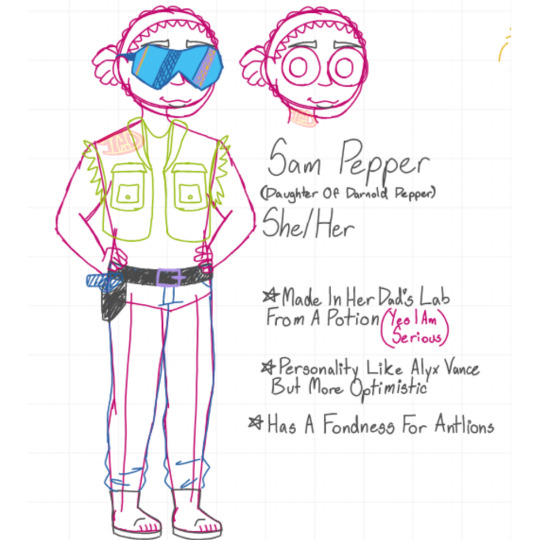 Sam Pepper
(Daughter Of Darnold Pepper)
She/Her
☆ Made In Her Dad's Lab
From A Potion (Yes I Am
Serious)
☆ Personality Like Alyx Vance
But More Optimistic
☆ Has A Fondness For Antlions